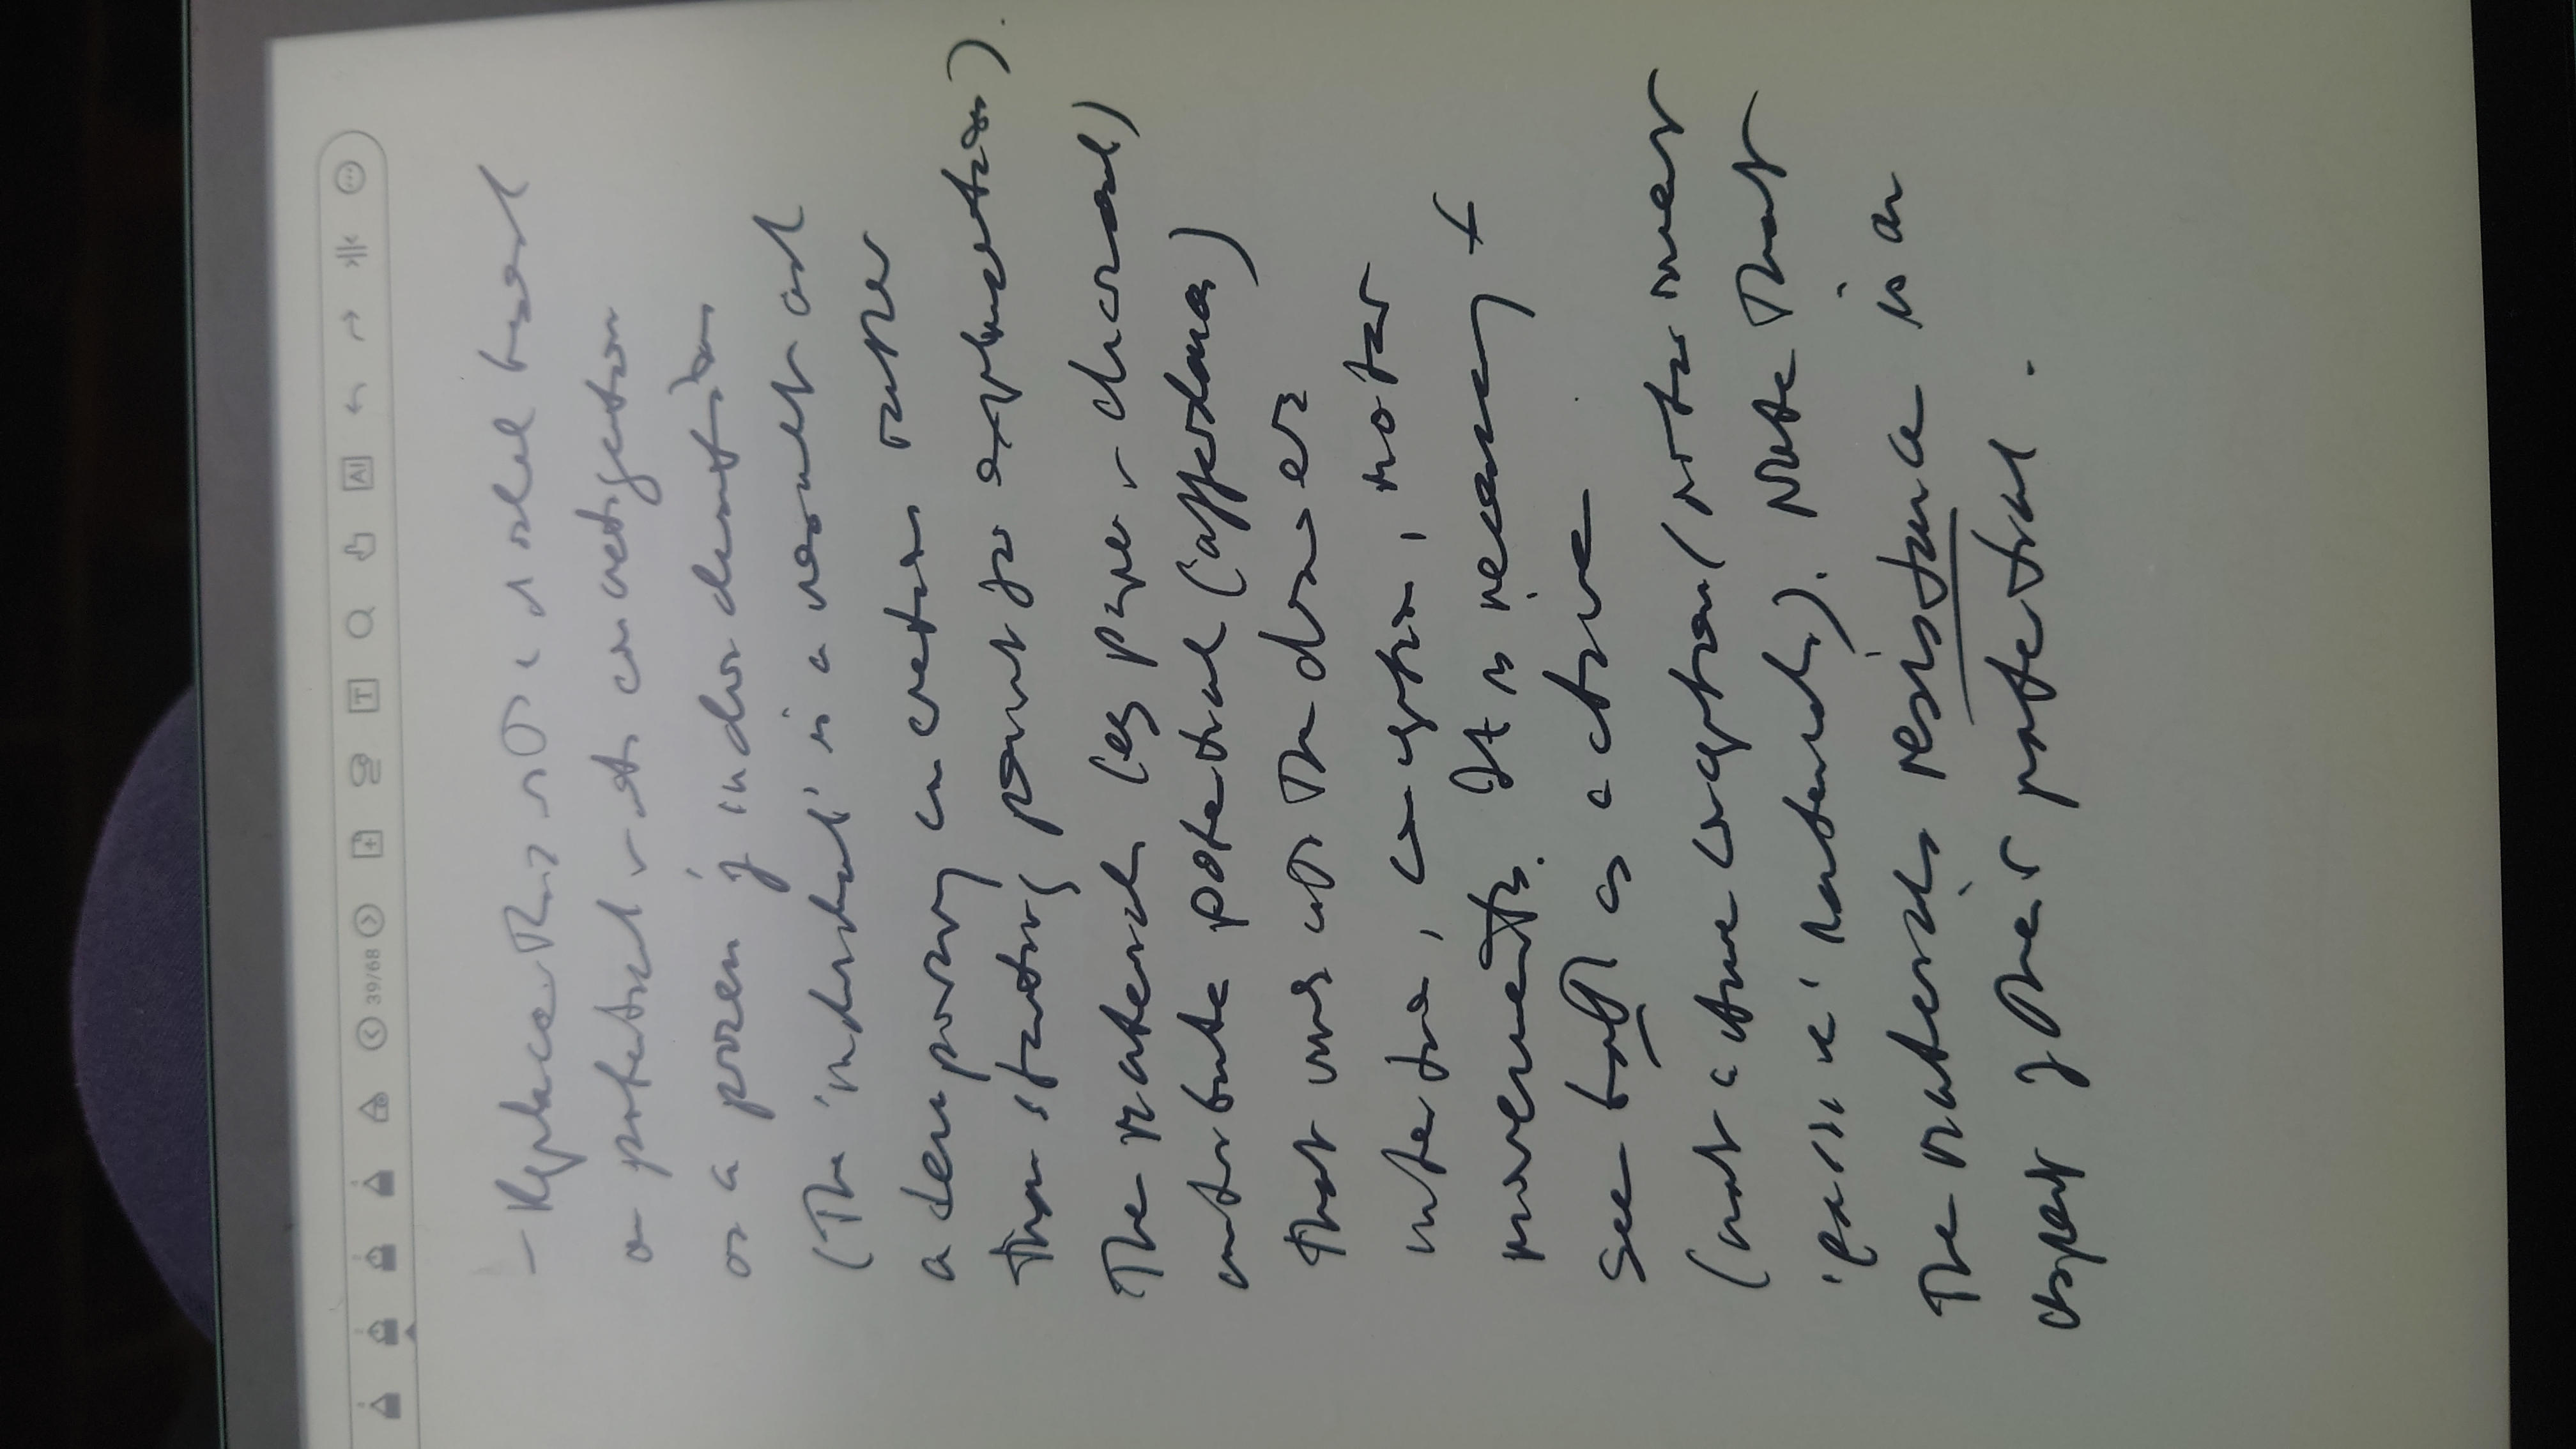 39/68 T AI
- Replace this with a model based
on potential & its concretization
as a process of individuation
(The 'individual' is a result and
a temporary concretion rather
than starting point for explanation).
The materials (eg paper & charcoal)
contribute potential (affordances)
that works with the drawers
intention, conception, motor
movements. It is necessary to
see both as active
(not active conception / motor
'passive' materials). Note that
The materials resistance is an
aspect of their potential.